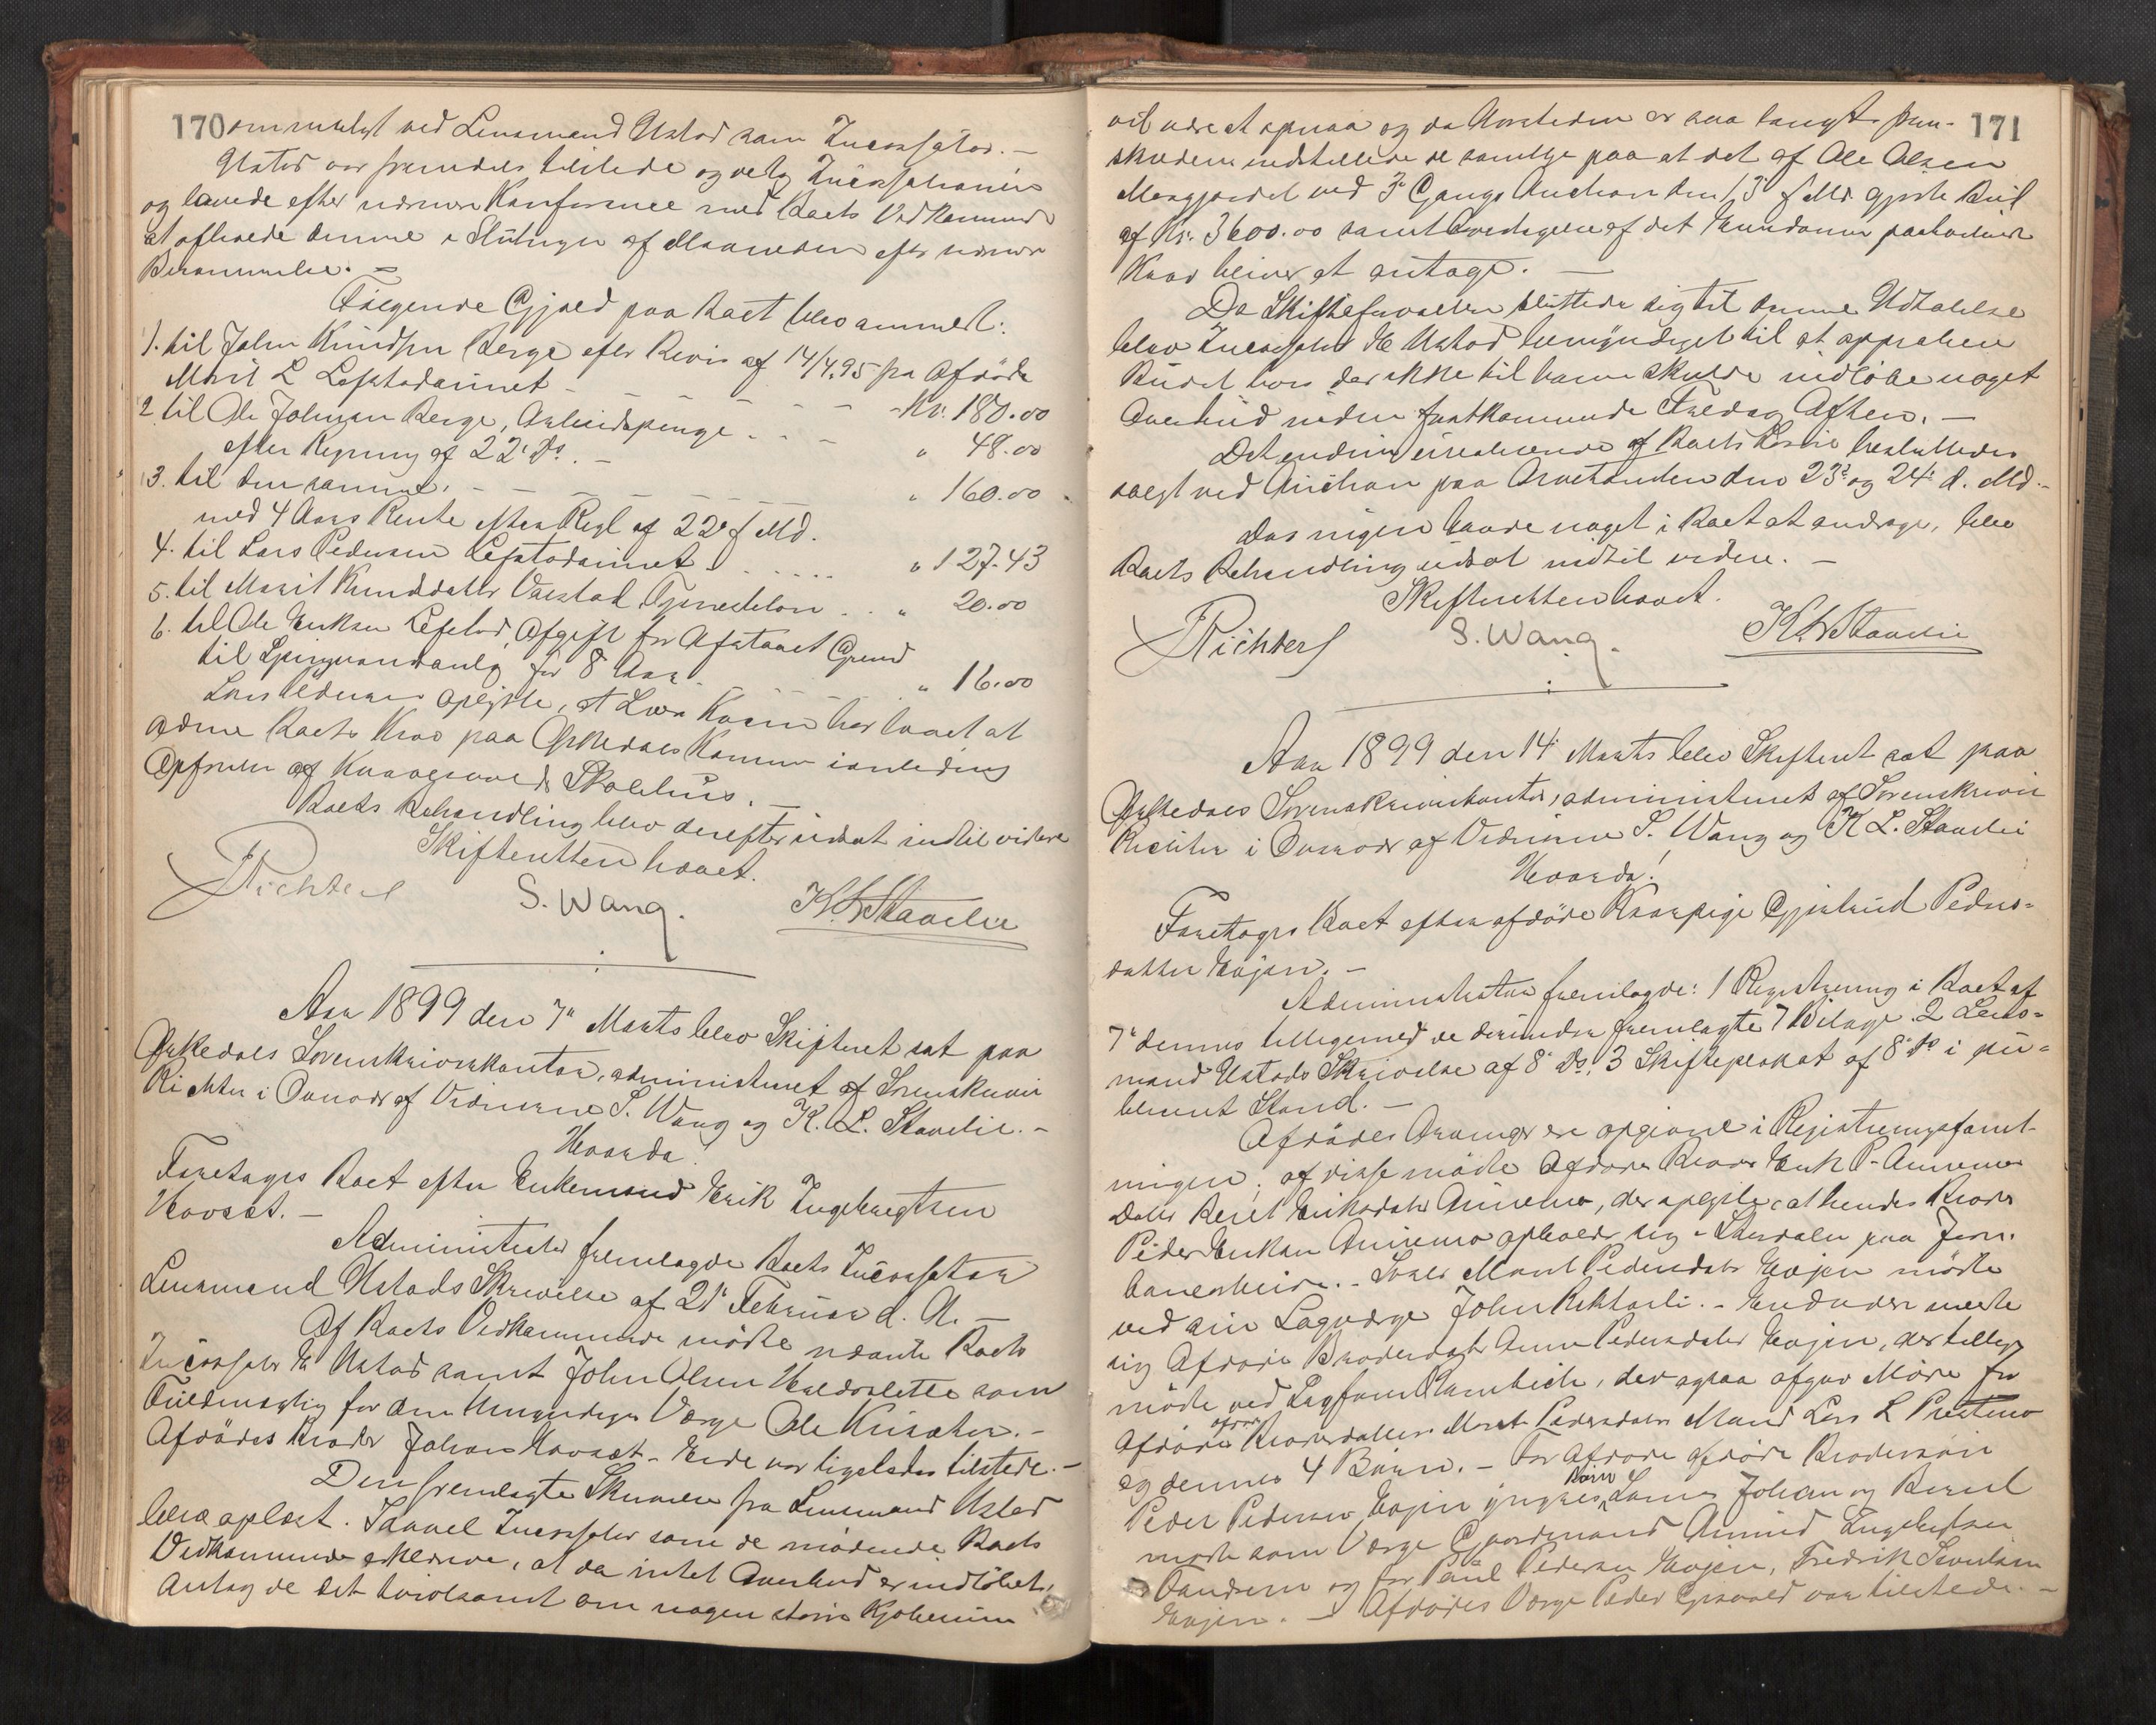 170 ommeldt ved Lensmand Ustad som Incassator. –
Ustad var fremdeles tilstede og vedtog Incassationen
og lovede efter nærmere Konference med Boets Vedkommende
at aflevere denne i Slutningen af Maaneden efter nærmere
Berammelse. –
Følgende Gjæld paa Boet blev anmeldt:
1. til John Knudsen Berge efter Bevis af 14/4.95 fra Afdøde
Marit L Lefstadaunet – – – – Kr. 180.00
2. til Ole Johnsen Berge, Arbeidspenge . . – " 48.00
efter Regning af 22' Ds. –
3. til den samme. – – – – – – " 160.00
med 4 Aars Rente efter Regl af 22' f. Md.
4. til Lars Pedersen Lefstadaunet . . . . . " 127.43
5. til Marit Knudsdatter Tjenerløn . . " 20.00
6. til Ole Eriksen Lefstad Afgift for Afstaaet Grund
til for 8 Aar. – – – – – " 16.00
Lars Pedersen oplyste, at har lovet at
ordne Boets Krav paa Orkedals Kommune i anledning
Opførelse af Skolehus. –
Boets Behandling blev derefter udsat indtil videre
Skifteretten hævet.
Richter S. Wang. K. L. Stavlie
Aar 1899 den 7' Marts blev Skifteret sat paa
Orkedals Sorenskriverkontor, administreret af Sorenskriver
Richter i Overvær af Vidnerne S. Wang og K. L. Stavlie. –
Hvorda!
Foretoges Boet efter Enkemand Erik Ingebregtsen
Hovset. –
Administrator fremlagde Boets Incassator
Lensmand Ustads Skrivelse af 21' Februar d. A. –
Af Boets Vedkommende mødte nævnte Boets
Incassator E Ustad samt John Olsen som
Fuldmægtig for den Umyndiges Værge Ole –
Afdødes Broder Johan Hovset – var ligeledes tilstede. –
Den fremlagte Skrivelse fra Lensmand Ustad
blev oplæst. Saavel Incassator som de mødende Boets
Vedkommende erklærede, at da intet Overbud er indløbet,
antog de det tvivlsomt om nogen større Kjøbesum
vil være at opnaa og da Aarstiden er saa langt frem- 171
skreden indstillede de samtlige paa at det af Ole Olsen
ved 3' Gangs Auction den 13' f. Md. gjorte Bud
af Kr. 3600.00 samt Overtagelse af det Eiendommen paahvilende
Kaar bliver at antage. –
Da Skifteforvalteren sluttede sig til denne Udtalelse
blev Incassator E Ustad bemyndiget til at approbere
Budet hvis der ikke til ham skulde indløbe noget
Overbud inden førstkommende Fredag Aften. –
Det endnu urealiserede af Boets Løsøre besluttedes
solgt ved Auction paa Aastedet den 23' og 24' d. Md. –
Da ingen havde noget i Boet at andrage, blev
Boets Behandling udsat indtil videre. –
Skifteretten hævet.
Richter S. Wang. K. L. Stavlie
Aar 1899 den 14' Marts blev Skifteret sat paa
Orkedals Sorenskriverkontor, administreret af Sorenskriver
Richter i Overvær af Vidnerne S. Wang og K L. Stavlie
Hvorda!
Foretoges Boet efter afdøde Kaarpige Gjertrud Peders-
datter Evjen. –
Administrator fremlagde: 1 Registrering i Boet af
7' dennes tilligemed de derunder fremlagte 7 Bilage 2 Lens-
mand Ustads Skrivelse af 8' Ds. 3 Skifteplakat af 8' Ds i pu-
bliceret Stand. –
Afdødes Arvinger ere opgivne i Registreringsforret-
ningen; af disse mødte Afdødes Broder Erik P. Aunemo
Datter Beret Eriksdatter Aunemo, der oplyste at hendes Broder
Peder Eriksen Aunemo opholder sig i Størdalen paa Jern-
banearbeide. – Søster Marit Pedersdatter Evjen mødte
ved sin Lagværge John . – Endvidere meldte
sig Afdødes Broderdatter Anne Pedersdatter Evjen, der tillige
mødte ved Sagfører , der ogsaa afgav Møde for
Afdødes afdøde Broderdatter Marit Pedersdatters Mand Lars L
og dennes 4 Børn. – For Afdødes afdøde Brodersøn
Peder Pedersen Evjen yngres Børn Johan og Beret
mødte som Værge Gaardmand Engebrigtsen
og for Paul Pedersen Evjen, Fredrik
Evjen. – Afdødes Værge Peder var tilstede. –